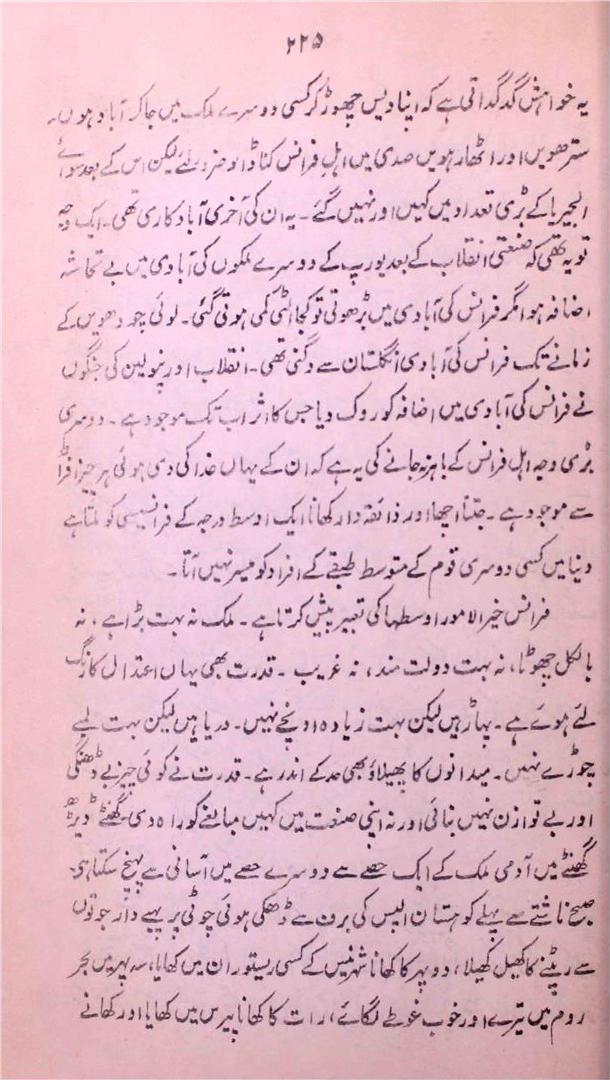 ۲۲۵
یہ خواہش گدگداتی ہے کہ اپنا دیس چھوڑ کر کسی دوسرے ملک میں جا کر آباد ہوں۔
سترھویں اور اٹھارہویں صدی میں اہل فرانس کناڈا ضرور گئے لیکن اس کے بعد سوائے
الجیریا کے بڑی تعداد میں کہیں اور نہیں گئے۔ یہ ان کی آخری آباد کاری تھی۔ ایک وجہ
تو یہ تھی کہ صنعتی انقلاب کے بعد یورپ کے دوسرے ملکوں کی آبادی میں بے تحاشہ
اضافہ ہوا مگر فرانس کی آبادی میں بڑھوتی تو کجا الٹی کمی ہوتی گئی۔ لوئی چودھویں کے
زمانے تک فرانس کی آبادی انگلستان سے دگنی تھی۔ انقلاب اور نپولین کی جنگوں
نے فرانس کی آبادی میں اضافہ کو روک دیا جس کا اثر اب تک موجود ہے۔ دوسری
بڑی وجہ اہل فرانس کے باہر نہ جانے کی یہ ہے کہ ان کے یہاں خدا کی دی ہوئی ہر چیز افراط
سے موجود ہے۔ جتنا اچھا اور ذائقہ دار کھانا ایک اوسط درجہ کے فرانسیسی کو ملتا ہے
دنیا میں کسی دوسری قوم کے متوسط طبقے کے افراد کو میسر نہیں آتا۔
فرانس خیر الامور اوسطہا کی تعبیر پیش کرتا ہے۔ ملک نہ بہت بڑا ہے، نہ
بالکل چھوٹا، نہ بہت دولت مند، نہ غریب۔ قدرت بھی یہاں اعتدال کا رنگ
لئے ہوئے ہے۔ پہاڑ ہیں لیکن بہت زیادہ اونچے نہیں۔ دریا ہیں لیکن بہت لمبے
چوڑے نہیں۔ میدانوں کا پھیلاؤ بھی حد کے اندر ہے۔ قدرت نے کوئی چیز بے ڈھنگی
اور بے توازن نہیں بنائی اور نہ اپنی صنعت میں کہیں مبالغے کو راہ دی۔ گھنٹے ڈیڑھ
گھنٹے میں آدمی ملک کے ایک حصے سے دوسرے حصے میں آسانی سے پہنچ سکتا ہے۔
صبح ناشتے سے پہلے کوہستان الپس کی برف سے ڈھکی ہوئی چوٹی پر پہیے دار جوتوں
سے رپٹنے کا کھیل کھیلا، دوپہر کا کھانا شہر نیس کے کسی ریستوران میں کھایا، سہ پہر میں بحر
روم میں تیرے اور خوب غوطے لگائے، رات کا کھانا پیرس میں کھایا اور کھانے